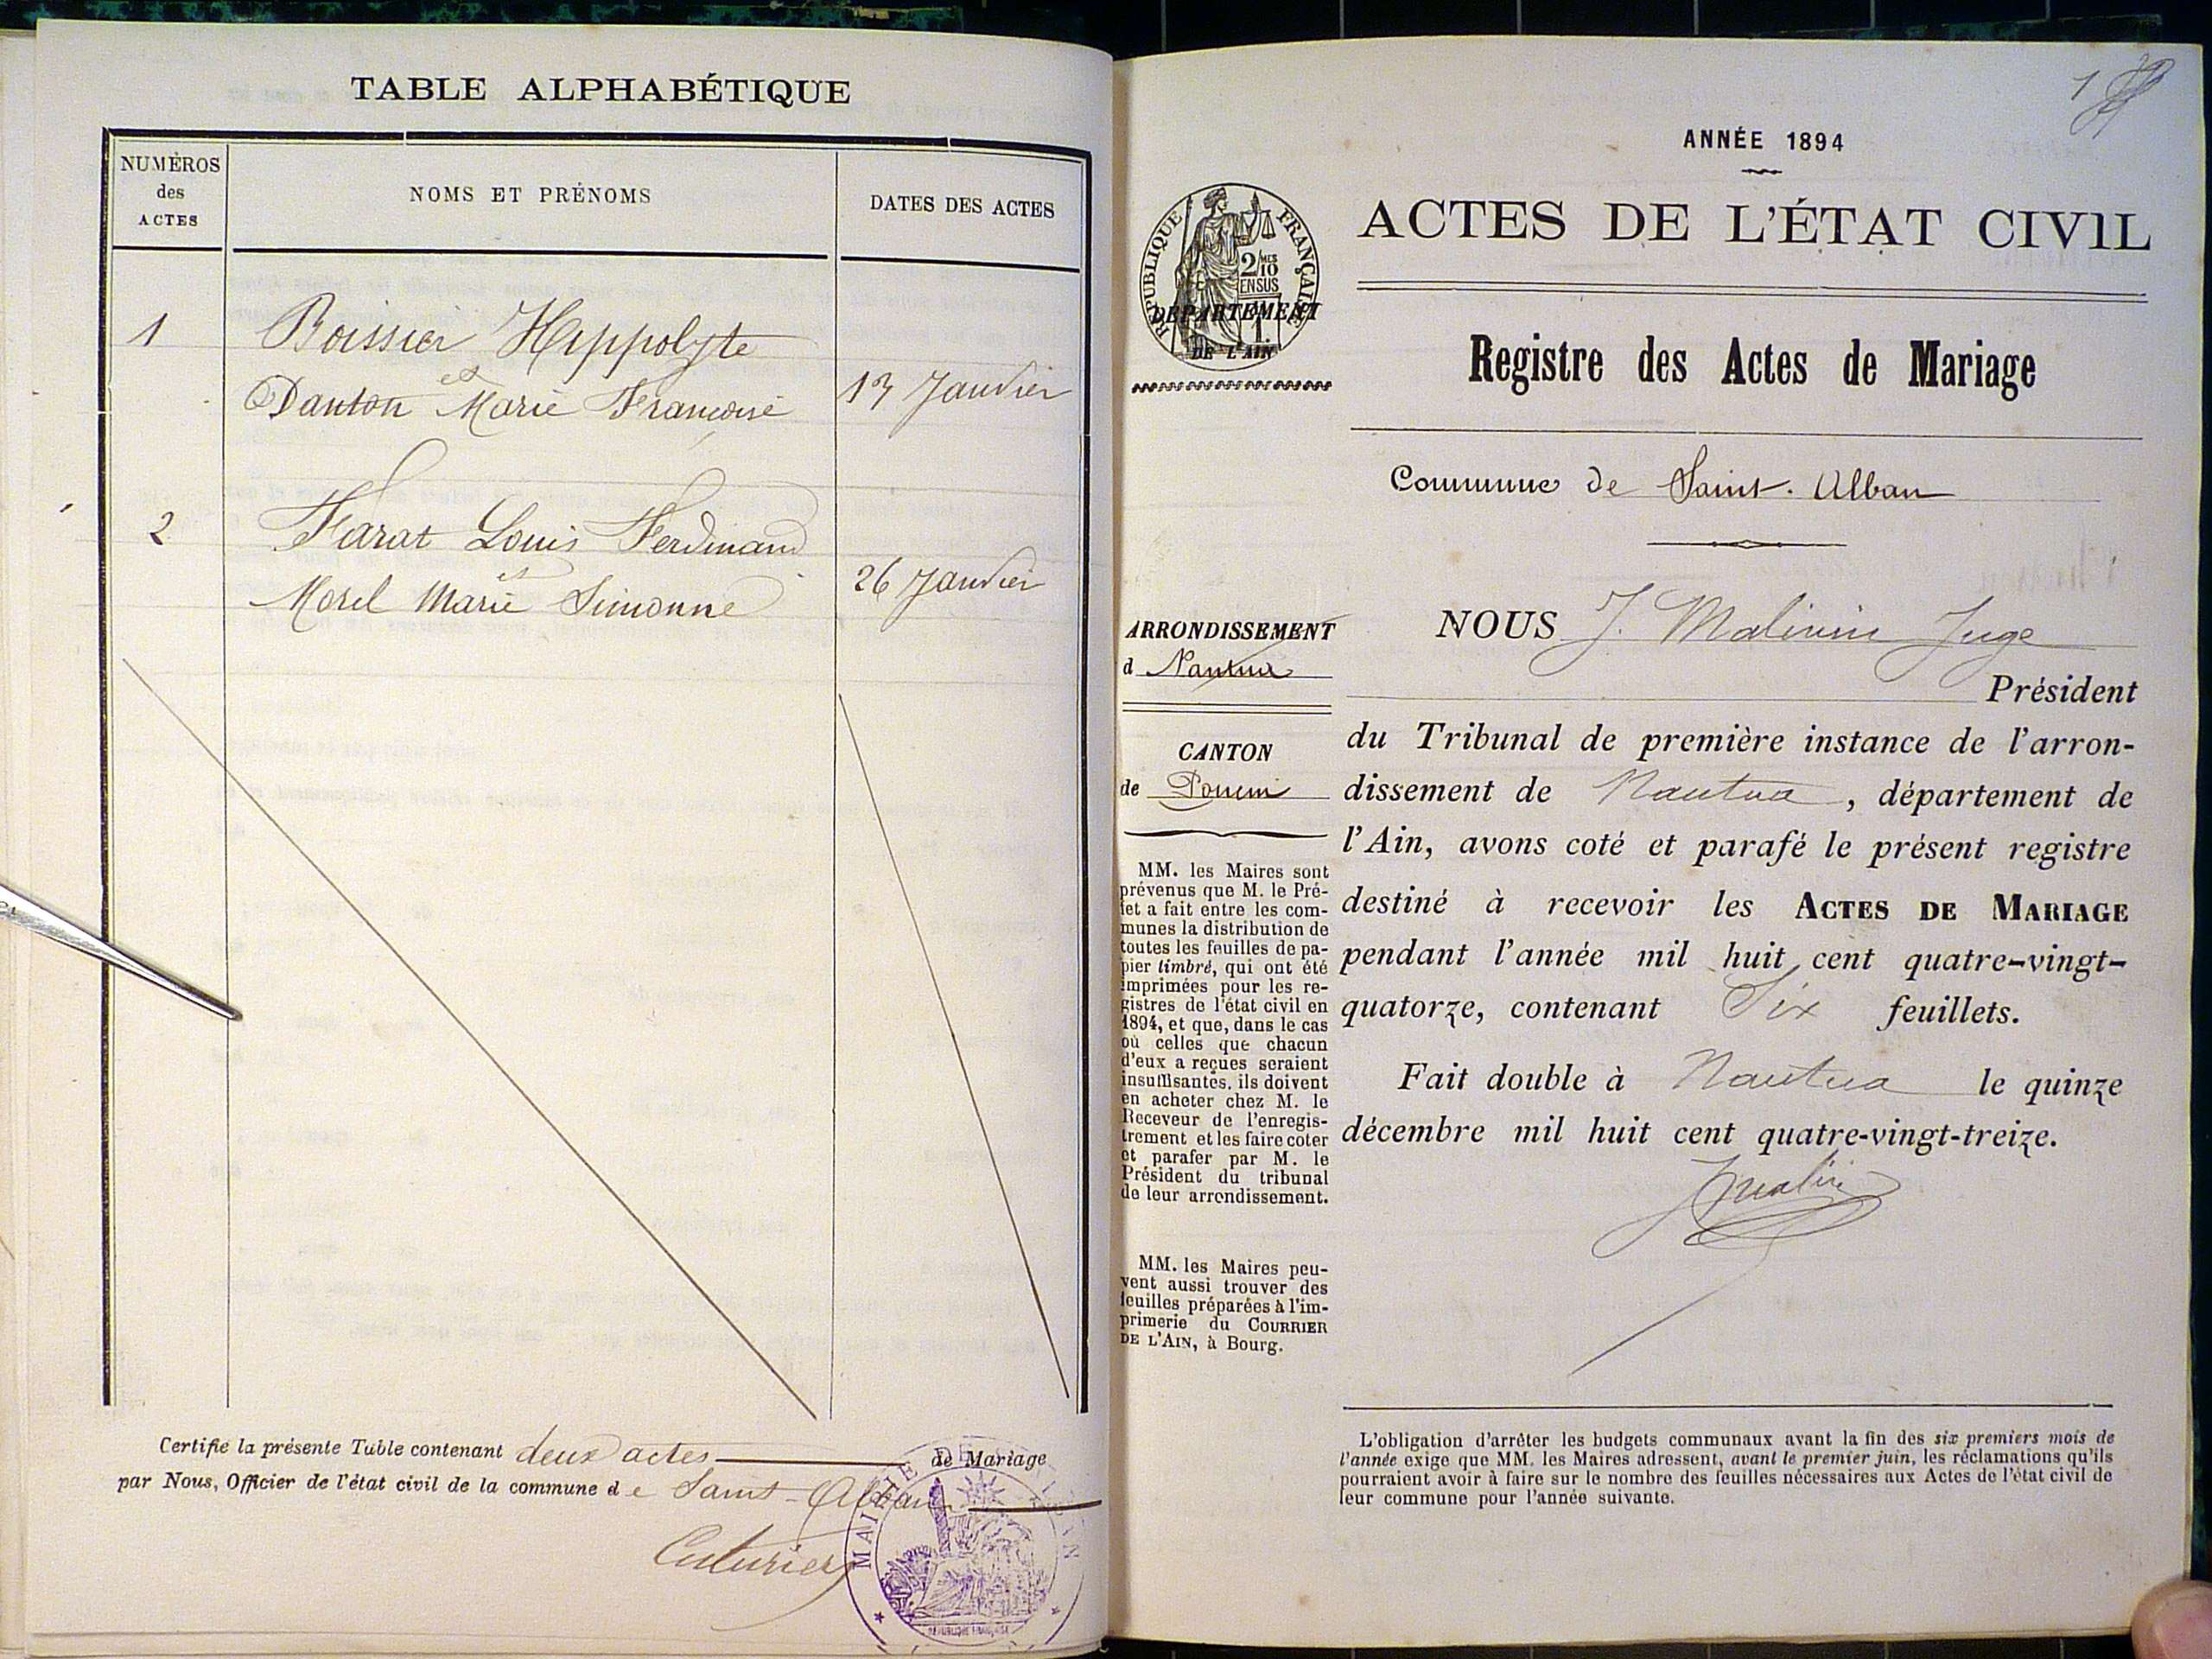 TABLE ALPHABÉTIQUE
NUMÉROS
des
ACTES
NOMS ET PRÉNOMS
DATES DES ACTES
1
Boissier Hippolyte
et
Danton Marie Françoise
13 Janvier
2
Farat Louis Ferdinand
et
Morel Marie Simonne
26 Janvier
Certifie la présente Table contenant deux actes de Mariage
par Nous, Officier de l'état civil de la commune de Saint-Alban
Cuturier
MAIRIE DE
RÉPUBLIQUE FRANÇAISE
1
ANNÉE 1894
ACTES DE L'ÉTAT CIVIL
RÉPUBLIQUE FRANÇAISE
2/10MES
EN SUS
DÉPARTEMENT
DE L'AIN
Registre des Actes de Mariage
Commune de Saint-Alban
ARRONDISSEMENT
d Nantua
CANTON
de Poncin
MM. les Maires sont
prévenus que M. le Pré-
fet a fait entre les com-
munes la distribution de
toutes les feuilles de pa-
pier timbré, qui ont été
imprimées pour les re-
gistres de l'état civil en
1894, et que, dans le cas
où celles que chacun
d'eux a reçues seraient
insuffisantes, ils doivent
en acheter chez M. le
Receveur de l'enregis-
trement et les faire coter
et parafer par M. le
Président du tribunal
de leur arrondissement.
MM. les Maires peu-
vent aussi trouver des
feuilles préparées à l'im-
primerie du COURRIER
DE L'AIN, à Bourg.
NOUS J. Juge
Président
du Tribunal de première instance de l'arron-
dissement de Nantua, département de
l'Ain, avons coté et parafé le présent registre
destiné à recevoir les ACTES DE MARIAGE
pendant l'année mil huit cent quatre-vingt-
quatorze, contenant Six feuillets.
Fait double à Nantua le quinze
décembre mil huit cent quatre-vingt-treize.
L'obligation d'arrêter les budgets communaux avant la fin des six premiers mois de
l'année exige que MM. les Maires adressent, avant le premier juin, les réclamations qu'ils
pourraient avoir à faire sur le nombre des feuilles nécessaires aux Actes de l'état civil de
leur commune pour l'année suivante.